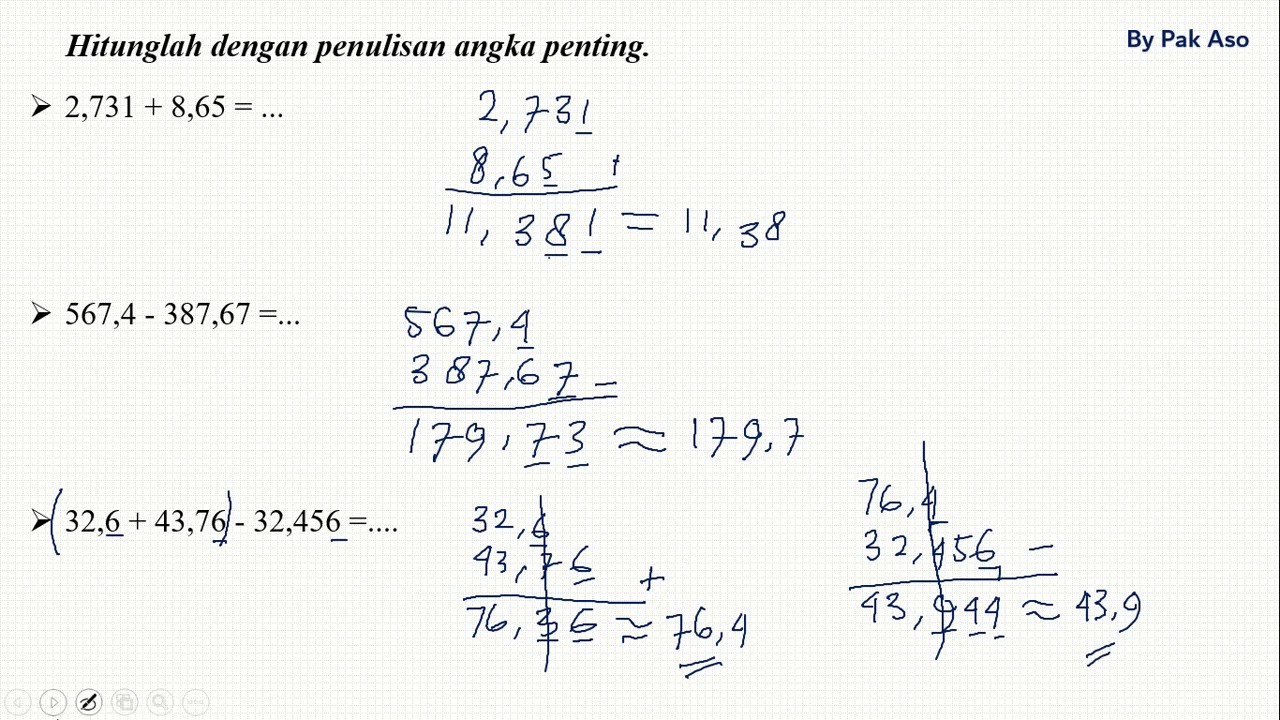 Hitunglah dengan penulisan angka penting.
By Pak Aso
➢ 2,731 + 8,65 = ...
2,731
8,65 +
11,381 = 11,38
➢ 567,4 - 387,67 =...
567,4
387,67 -
179,73 ≈ 179,7
➢ (32,6 + 43,76) - 32,456 =....
32,6
43,76 +
76,36 ≈ 76,4
76,4
32,456 -
43,944 ≈ 43,9